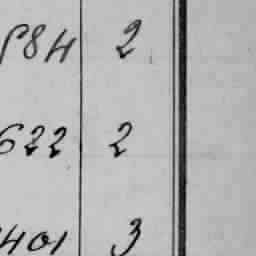 584 2
622 2
401 3